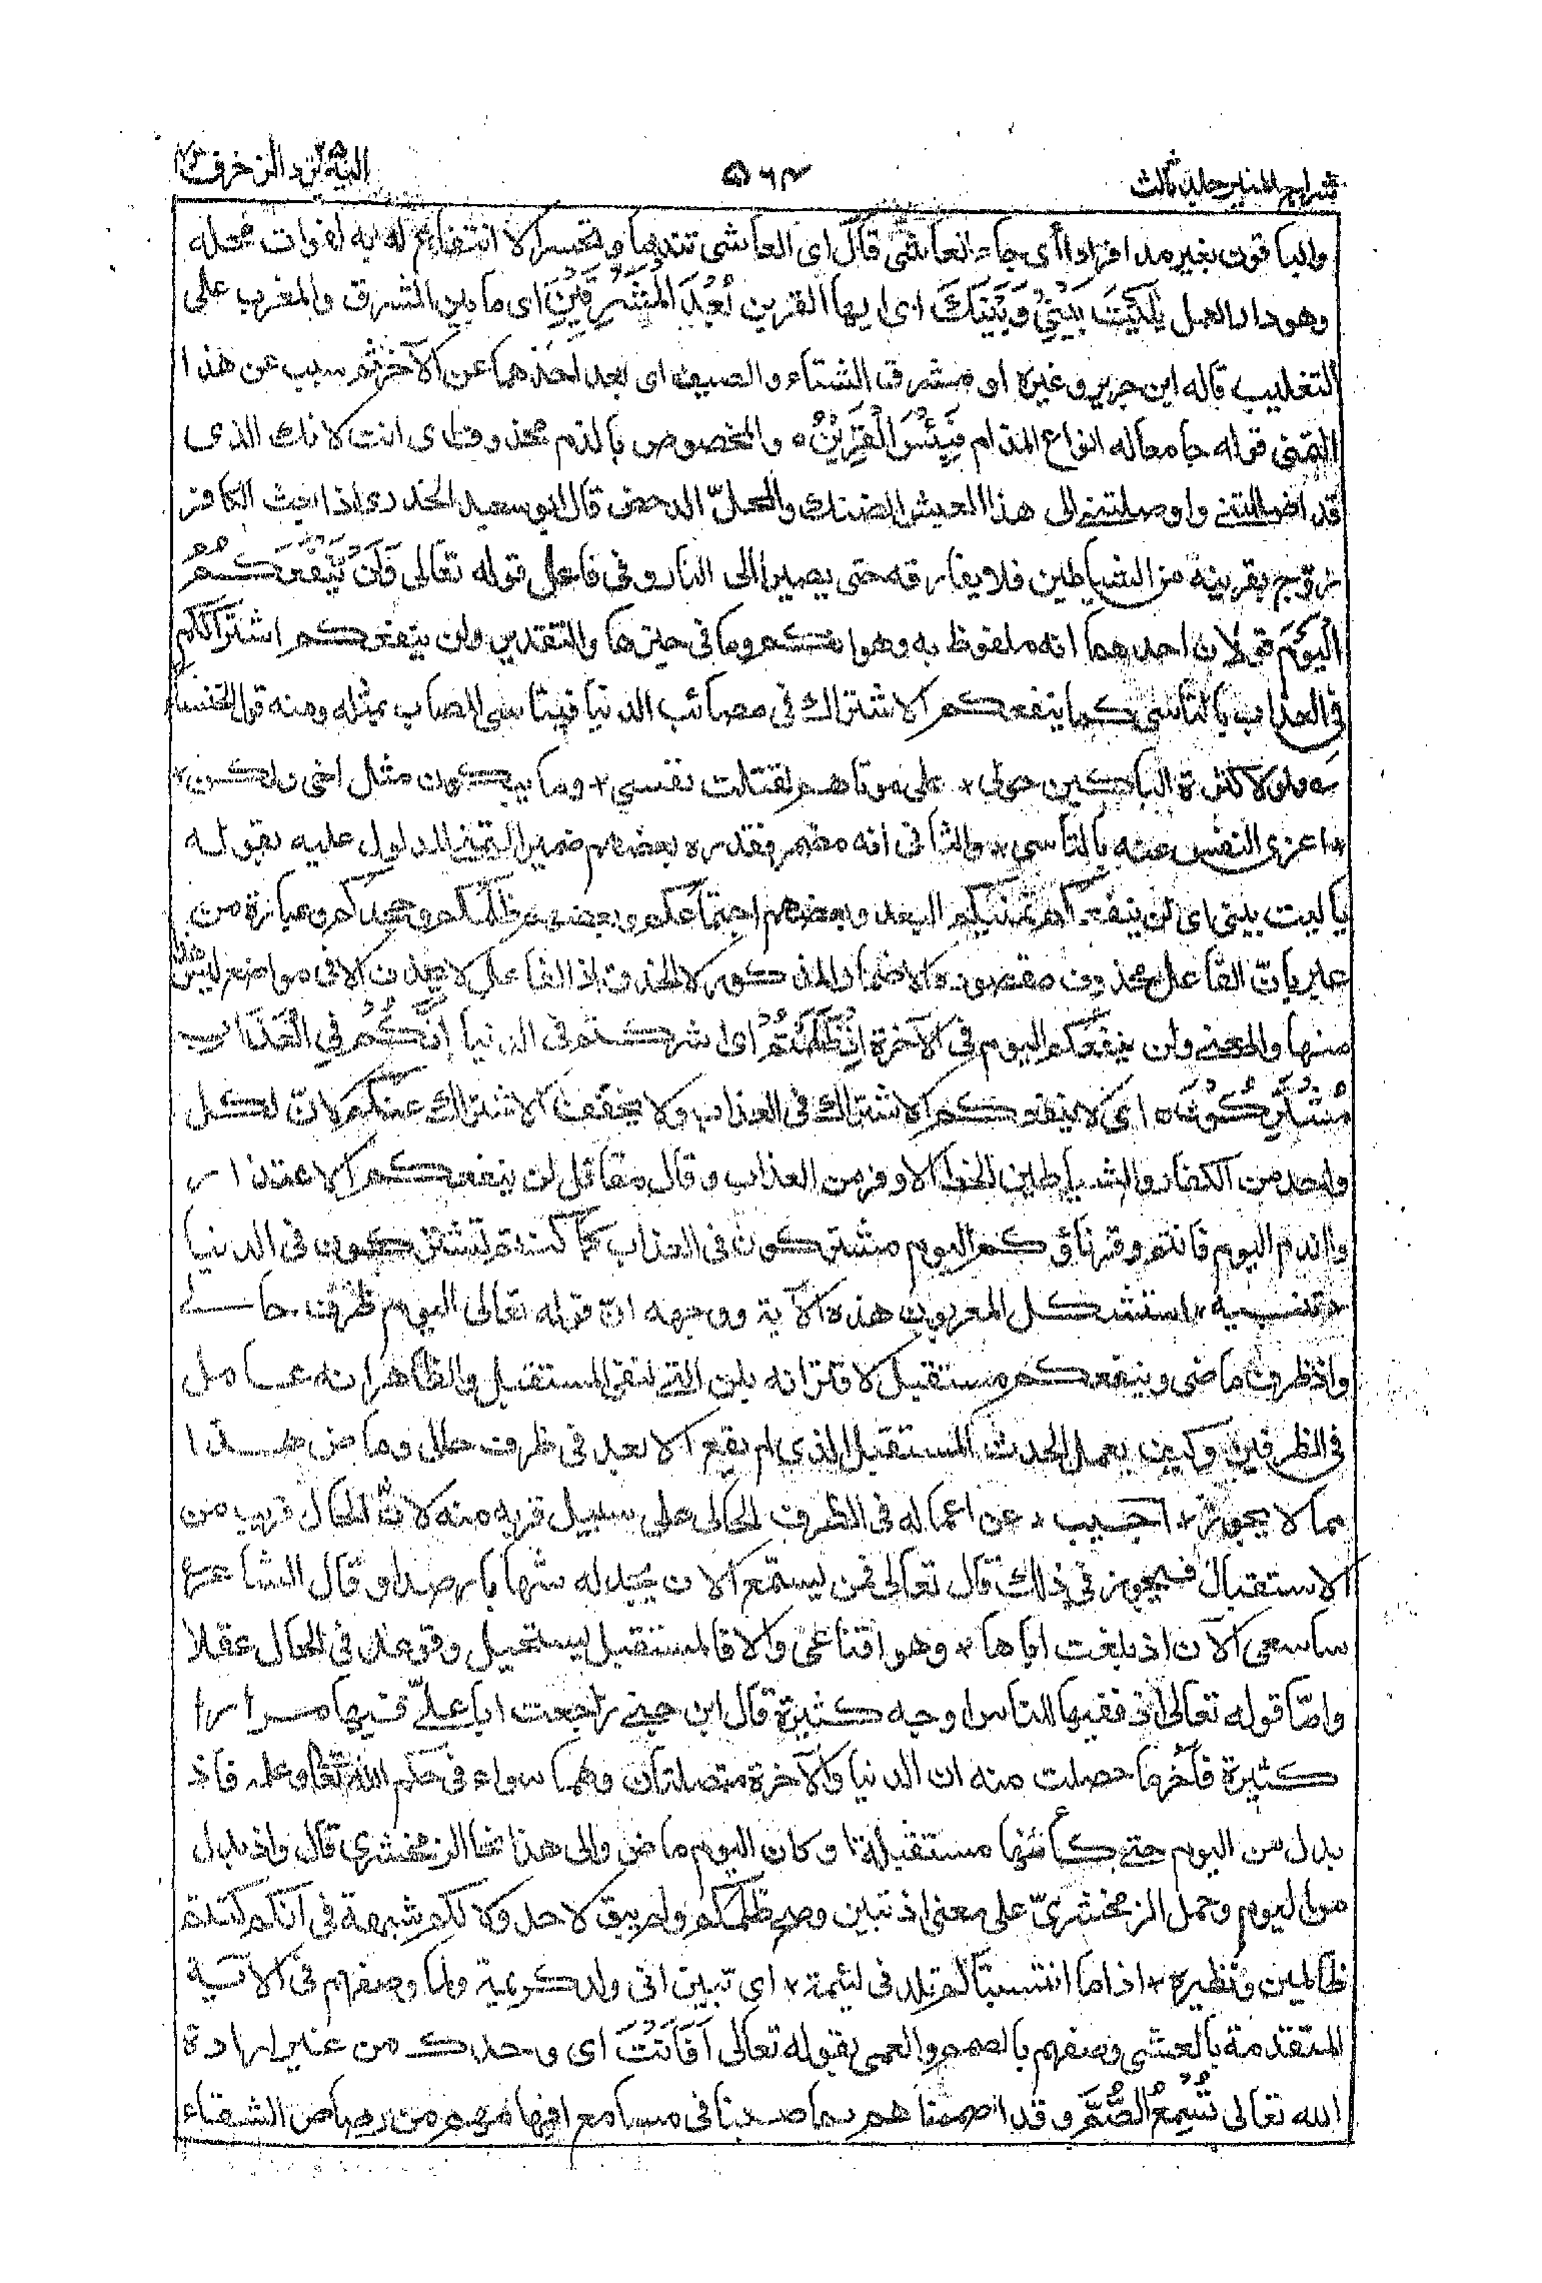 سراج المنير جلد ثالث
٥٦٤
اليه يرد الزخرف
والباقون بغير مد افرادا أى جاء العاشى قال اى العاشى تندما وتحسرا لا انتفاع له به لفوات محله
وهو دار العمل يٰلَيْتَ بَيْنِيْ وَبَيْنَكَ اى ايها القرين بُعْدَ الْمَشْرِقَيْنِ اى ما بين المشرق والمغرب على
التغليب قاله ابن جرير وغيره او مشرق الشتاء والصيف اى بعد احدهما عن الآخر ثم سبب عن هذا
التمنى قوله جامعا له انواع المذام فَبِئْسَ الْقَرِيْنُ ٥ والمخصوص بالذم محذوف اى انت لانك الذى
قد اضللتنى واوصلتنى الى هذا العيش الضنك والمحلّ الدحض قال ابو سعيد الخدرى اذا بعث الكافر
زوج بقرينه من الشياطين فلا يفارقه حتى يصيرا الى النار وفى فاعل قوله تعالى وَلَنْ يَّنْفَعَكُمُ
الْيَوْمَ قولان احدهما انه ملفوظ به وهو انكم وما فى حيزها والتقدير ولن ينفعكم اشتراككم
فى العذاب بالتأسى كما ينفعكم الاشتراك فى مصائب الدنيا فيتأسى المصاب بمثله ومنه قول الخنساء
ولولا كثرة الباكين حولى * على موتاهم لقتلت نفسي * وما يبكون مثل اخى ولكن *
اعزى النفس عنه بالتأسى * والثانى انه مضمر فقدره بعضهم ضمير التمنى المدلول عليه بقوله
يا ليت بينى اى لن ينفعكم تمنيكم البعد وبعضهم اجتماعكم وبعضهم ظلمكم وجحدكم وعبارة من
عبر بان الفاعل محذوف مقصوده الاضمار المذكور لا الحذف اذ الفاعل لا يحذف الا فى مواضع ليس هذا
منها والمعنى ولن ينفعكم اليوم فى الآخرة اِذْ ظَلَمْتُمْ اى اشركتم فى الدنيا اِنَّكُمْ فِى الْعَذَابِ
مُشْتَرِكُوْنَ ٥ اى لا ينفعكم الاشتراك فى العذاب ولا يخفف الاشتراك عنكم لانّ لكل
واحد من الكفار والشياطين الحظ الاوفر من العذاب وقال مقاتل لن ينفعكم الاعتذار
والندم اليوم فانتم وقرناؤكم اليوم مشتركون فى العذاب كما كنتم تشتركون فى الدنيا
* تنبيه * استشكل المعربون هذه الآية ووجهه انّ قوله تعالى اليوم ظرف حالى
واذ ظرف ماضى وينفعكم مستقبل لاقترانه بلن التى لنفى المستقبل والظاهر انه عامل
فى الظرفين وكيف يعمل الحدث المستقبل الذى لم يقع الا بعد فى ظرف حال وماض هذا
مما لا يجوز * اجيب * عن اعماله فى الظرف الحالى على سبيل قربه منه لانّ الحال قريب من
الاستقبال فيجوز فى ذلك قال تعالى فمن يستمع الان يجد له شهابا رصدا وقال الشاعر ع
ساسعى الآن اذ بلغت اباها * وهو اقناعى والا فالمستقبل يستحيل وقوعه فى الحال عقلا
وامّا قوله تعالى اذ ففيها للناس اوجه كثيرة قال ابن جنى راجعت ابا علىّ فيها مرارا
كثيرة فآخر ما حصلت منه ان الدنيا والآخرة متصلتان وهما سواء فى حكم الله تعالى وعلمه فاذ
بدل من اليوم حتى كأنّها مستقبلة او كان اليوم ماض والى هذا نحا الزمخشرى قال واذ بدل
من اليوم وحمل الزمخشرىّ على معنى اذ تبين وصح ظلمكم ولم يبق لاحد ولا لكم شبهة فى انكم كنتم
ظالمين ونظيره * اذا ما انتسبنا لم تلدنى لئيمة * اى تبين انى ولد كريمة ولما وصفهم فى الآية
المتقدمة بالعشى وصفهم بالصمم والعمى بقوله تعالى اَفَاَنْتَ اى وحدك من غير ارادة
الله تعالى تُسْمِعُ الصُّمَّ وقد اصممناهم بما صببنا فى مسامع افهامهم من رصاص الشقاء